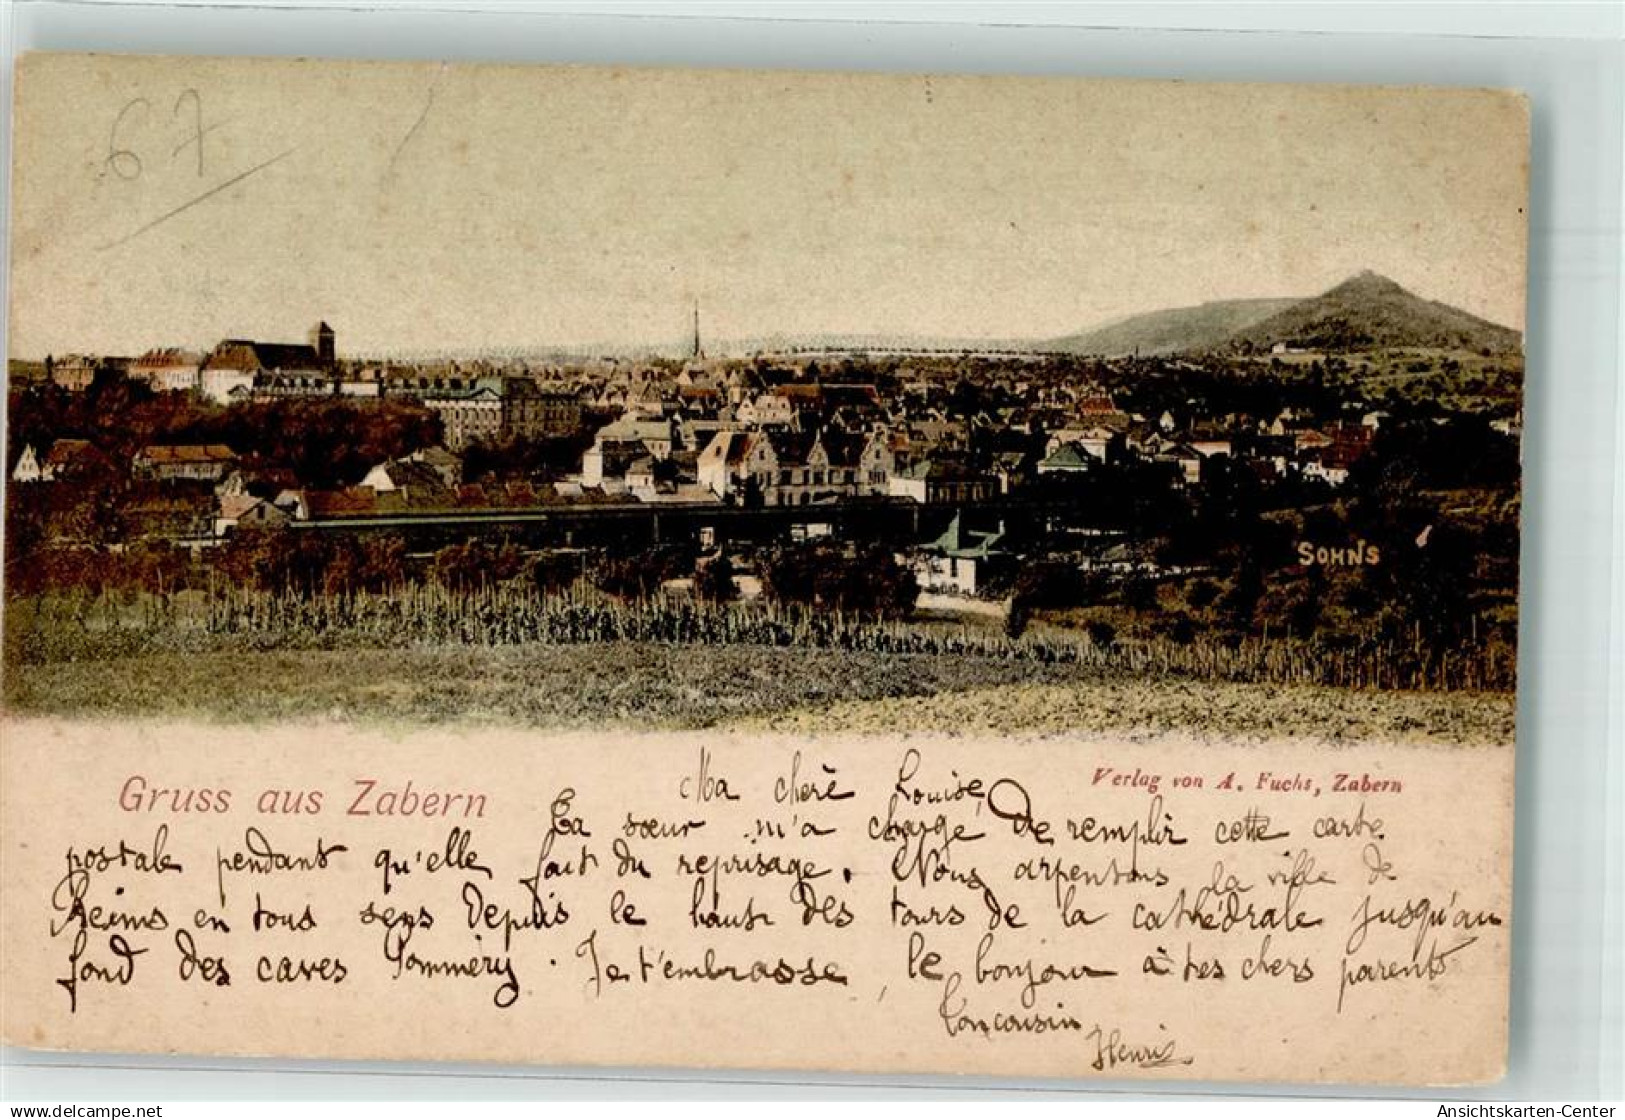 67
SOHNS
Gruss aus Zabern
Verlag von A. Fuchs, Zabern
Ma chère Louise,
Ta sœur m'a chargé de remplir cette carte
postale pendant qu'elle fait du reprisage. Nous arpentons la ville de
Reims en tous sens depuis le haut des tours de la cathédrale jusqu'au
fond des caves Pommery. Je t'embrasse, le bonjour à tes chers parents
Ton cousin
Henri
www.ansichtskarten-center.de
Ansichtskarten-Center